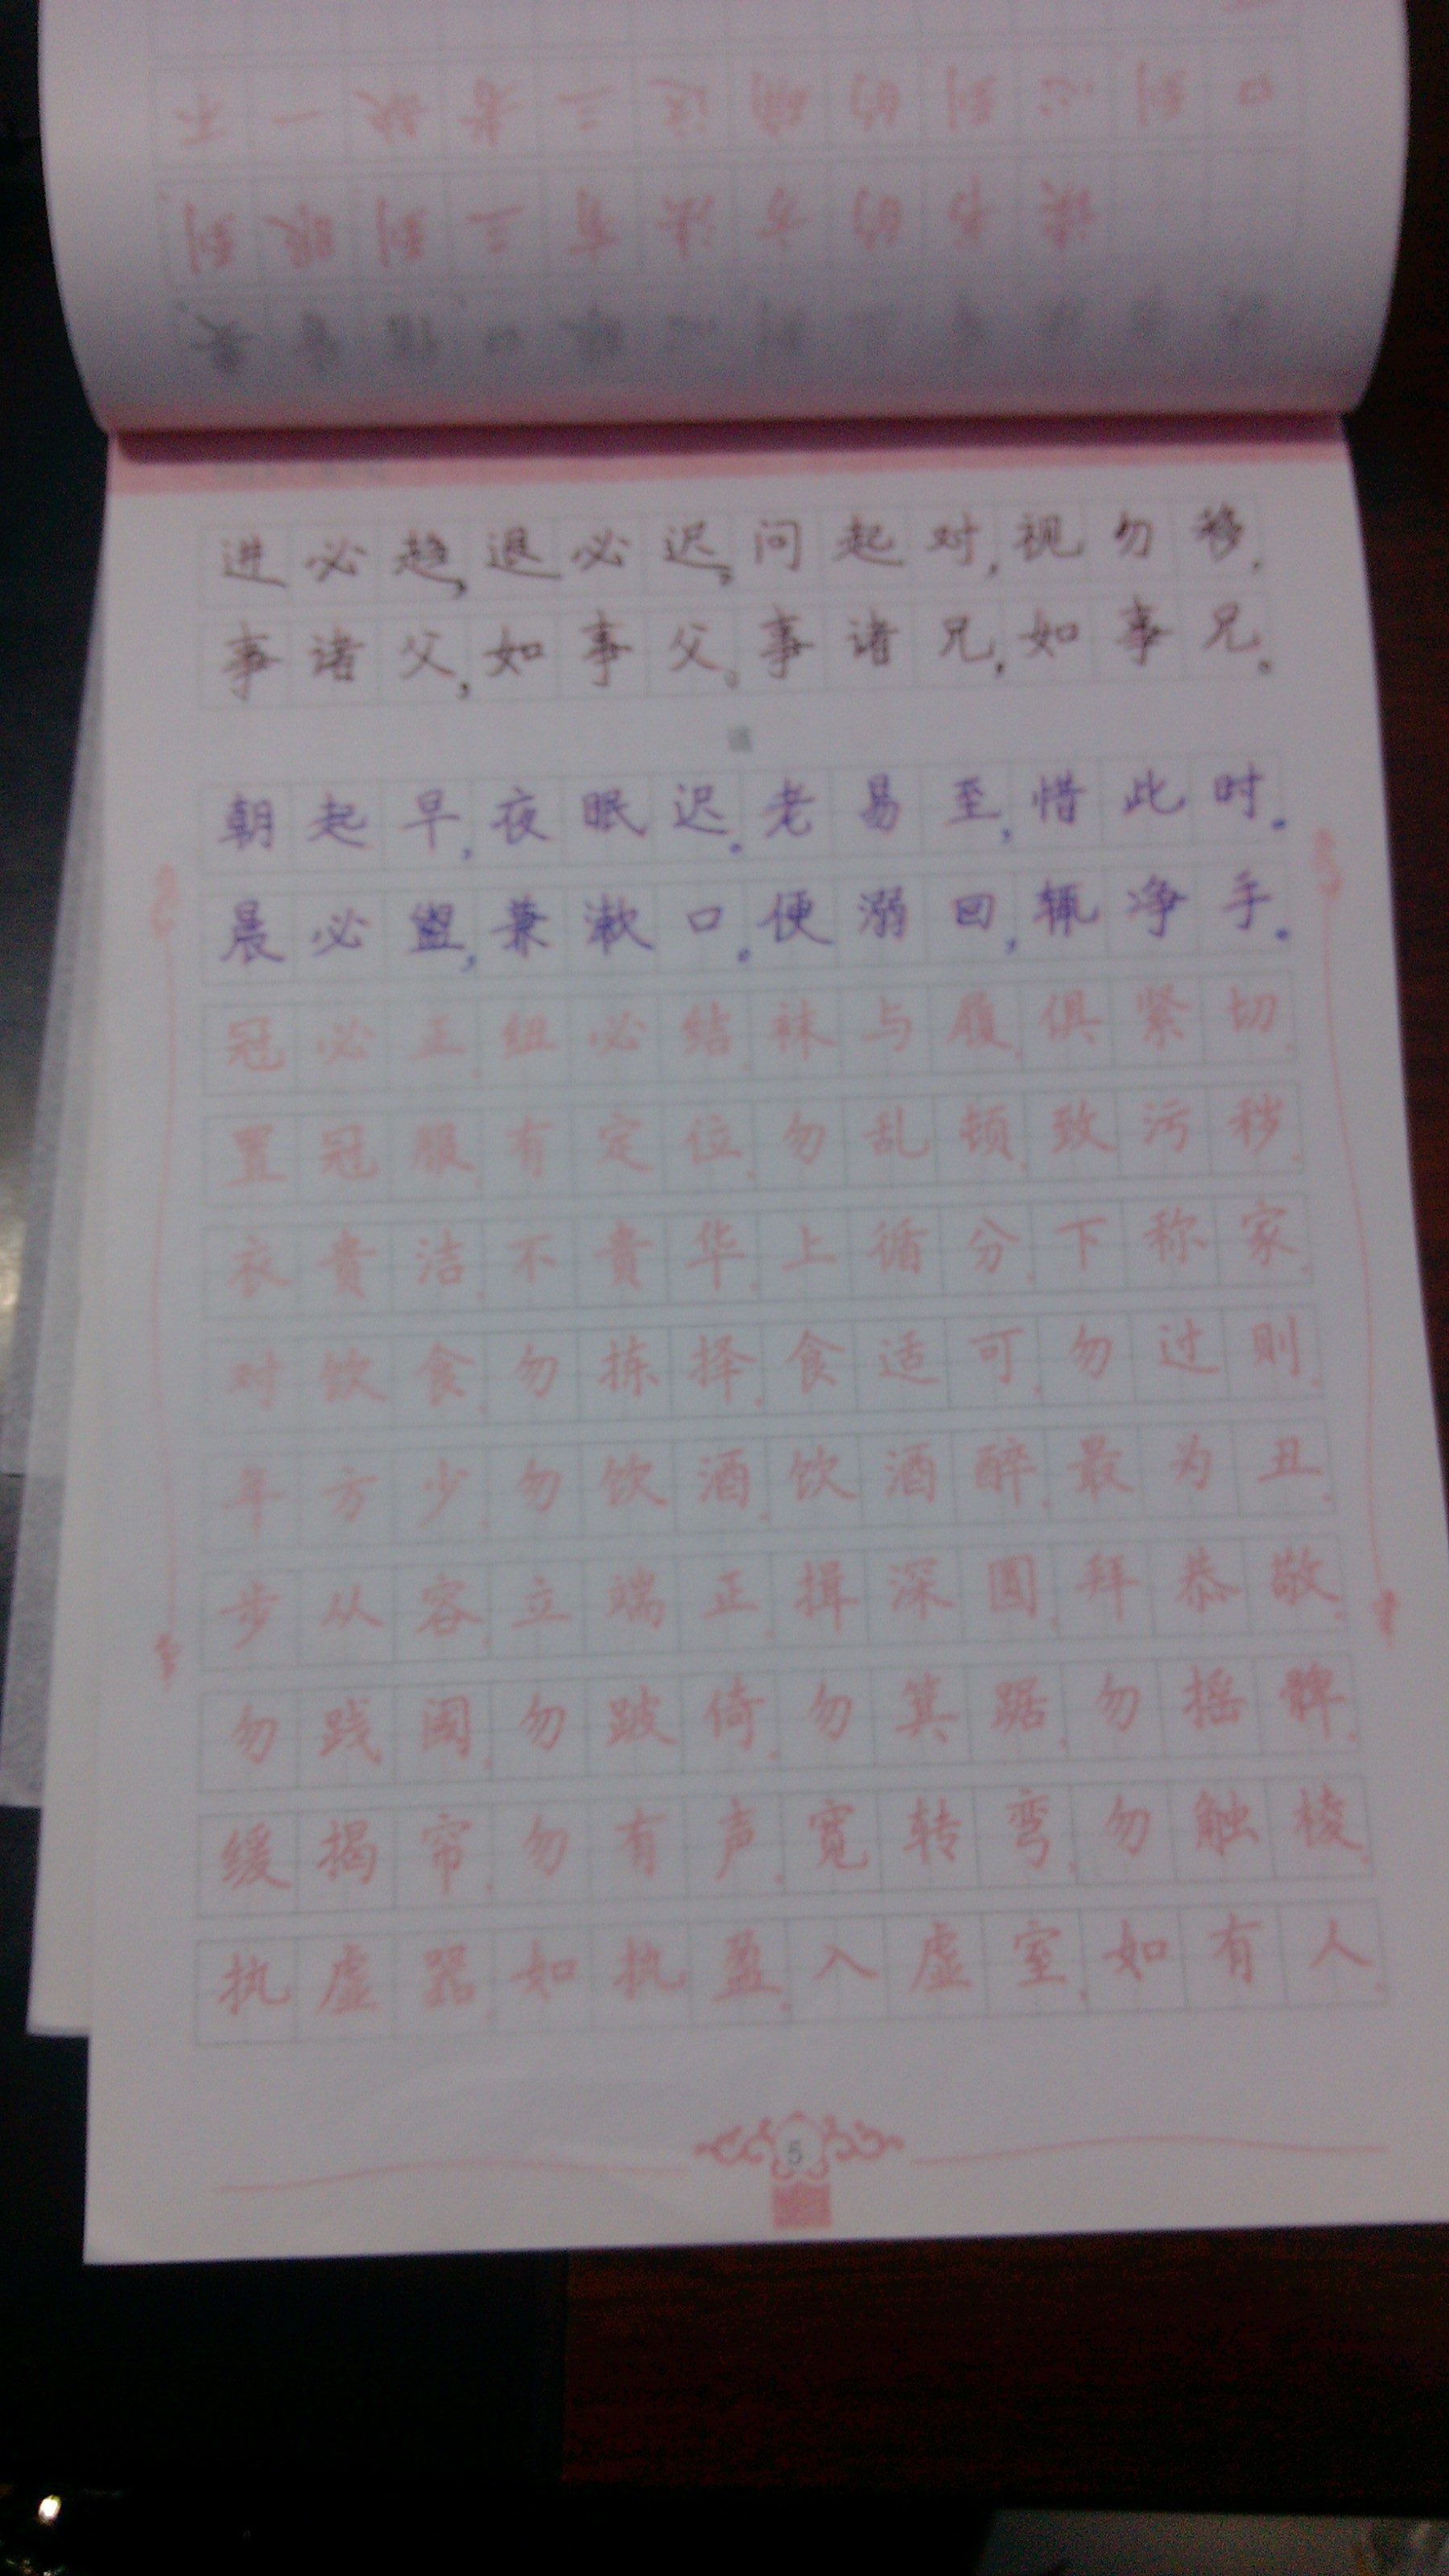 口到心到的确这三者缺一不
读书的方法有三到眼到
进必趋,退必迟,问起对,视勿移.
事诸父,如事父。事诸兄,如事兄。
朝起早,夜眠迟。老易至,惜此时。
晨必盥,兼漱口。便溺回,辄净手。
冠必正,纽必结.袜与履,俱紧切.
置冠服,有定位.勿乱顿,致污秽.
衣贵洁,不贵华.上循分,下称家.
对饮食,勿拣择.食适可,勿过则.
年方少,勿饮酒.饮酒醉,最为丑.
步从容,立端正.揖深圆,拜恭敬.
勿践阈,勿跛倚.勿箕踞,勿摇髀.
缓揭帘,勿有声.宽转弯,勿触棱.
执虚器,如执盈.入虚室,如有人.
5